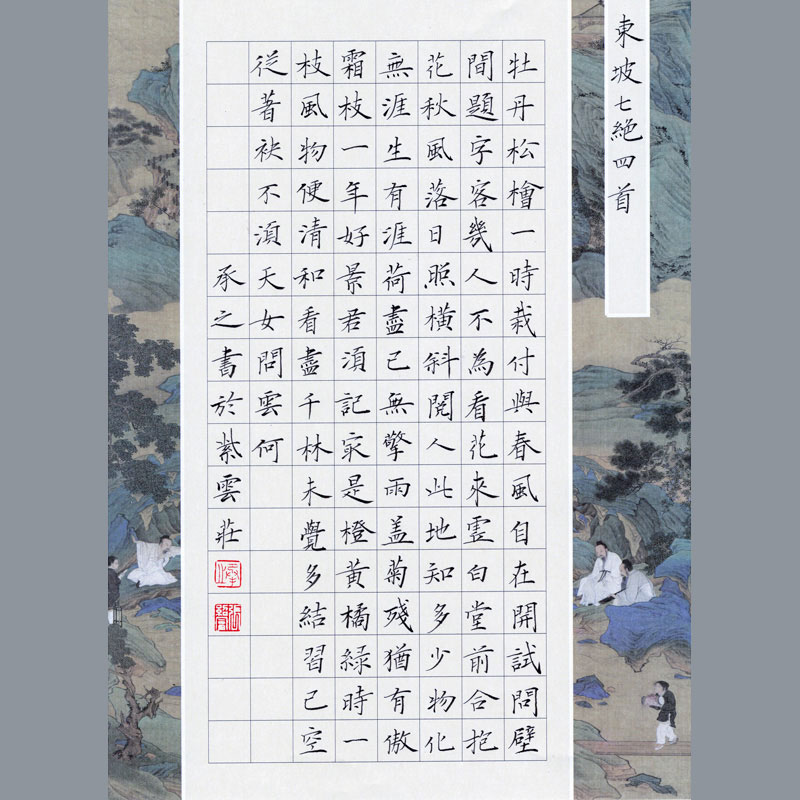 東坡七絕四首
牡丹松檜一時栽付與春風自在開試問壁
間題字客幾人不為看花來霊白堂前合抱
花秋風落日照橫斜閱人此地知多少物化
無涯生有涯荷盡已無擎雨盖菊殘猶有傲
霜枝一年好景君須記㝡是橙黃橘緑時一
枝風物便清和看盡千林未覺多結習已空
從著袂不須天女問雲何
承之書於紫雲莊